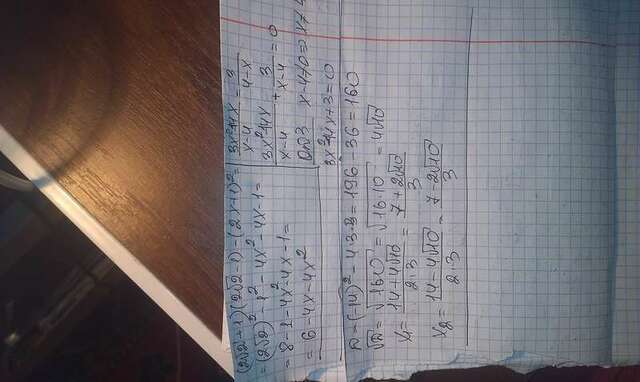 (2√2-1)(2√2-1)-(2x+1)²=
=(2√2)²-1²-4x²-4x-1=
=8-1-4x²-4x-1=
=6-4x-4x²
3x²-14x/x-4=3/4-x
3x²-14x/x-4+3/x-4=0
ОДЗ x-4≠0 => x≠4
3x²-14x+3=0
D=(-14)²-4·3·3=196-36=160
√D=√160=√16·10=4√10
x₁=14+4√10/2·3=7+2√10/3
x₂=14-4√10/2·3=7-2√10/3